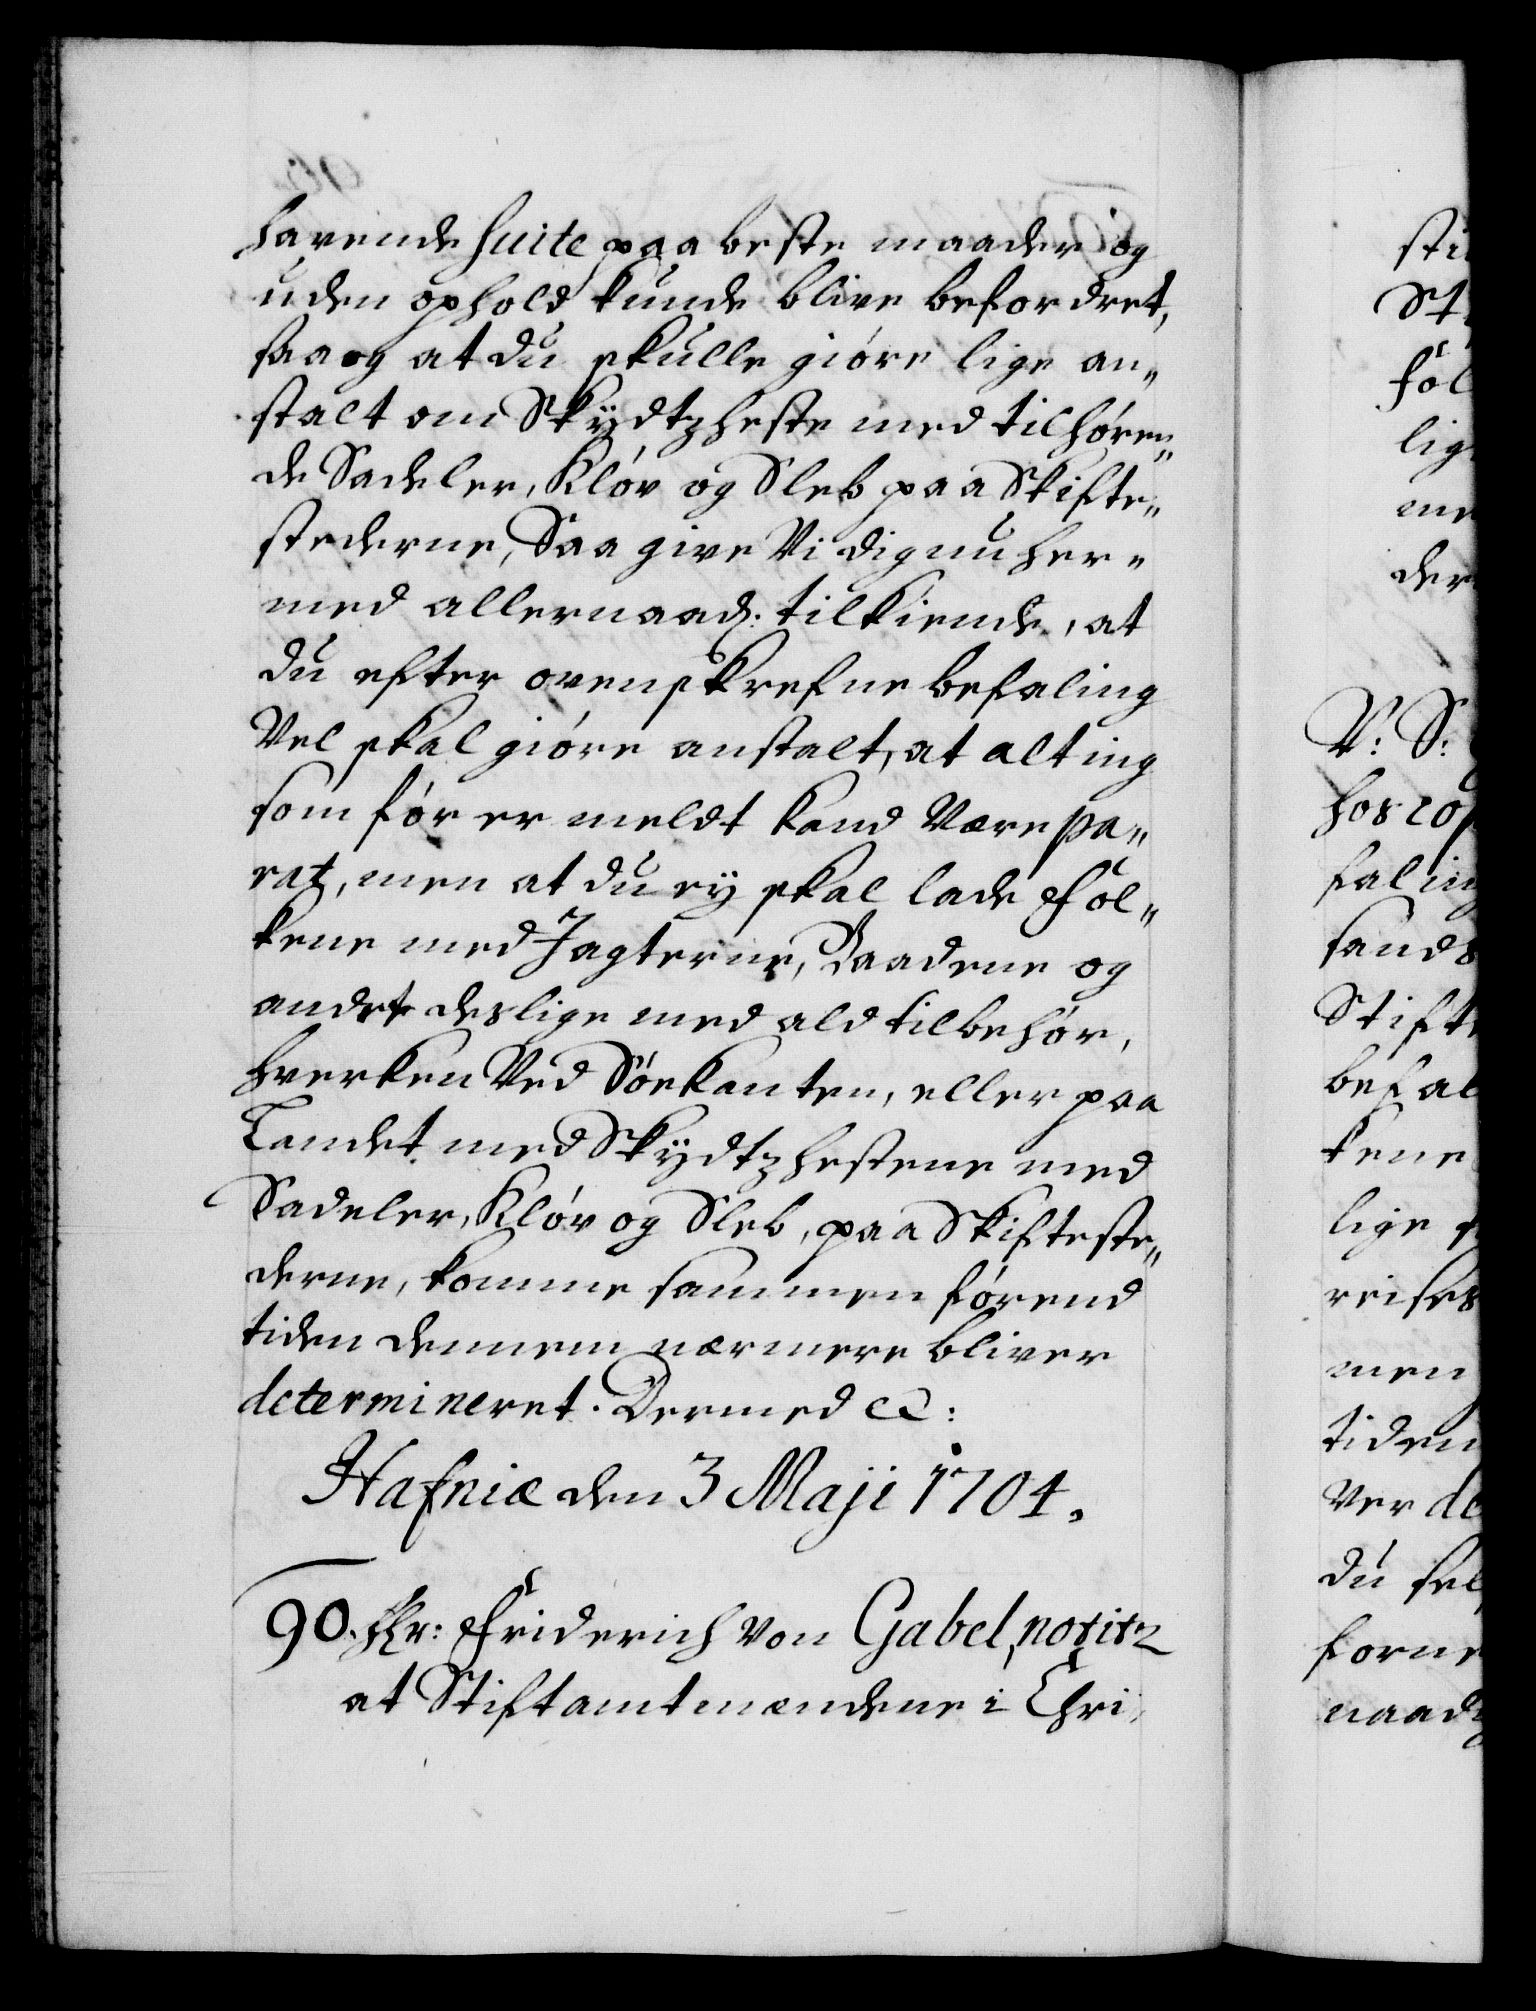 havende Suite paa beste maader og
uden ophold kunde blive befordret,
saa og at du skulle giöre lige an„
stalt om Skÿdtzheste med tilhören„
de Sadeler, Klöv og Sleb paa Skifte„
stederne, Saa give Vi dig nu her„
med allernaad: tilkiende, at
du efter ovenskrefne befaling
Vel skal giöre anstalt, at alting
som för er meldt kand Være pa„
rat, men at du eÿ skal lade Fol„
kene med Jagterne, Baadene og
andet deslige med ald tilbehör,
hverken Ved Söekanten, eller paa
Landet med Skÿdtzhestene med
Sadeler, Klöv og Sleb, paa Skifteste„
derne, komme sammen förend
tiden dennem nærmere bliver
determineret. Dermed etc:
Hafniæ den 3 Maji 1704.
90. Hr: Friderich Von Gabel, notitz
at Stiftamtmændene i Chri„
sti
St
fol
lig
me
der
V: S:
hos co
faling
sands
Stift
befal
kene
lige
reises
men
tiden
Ver de
du sel
forne
naad